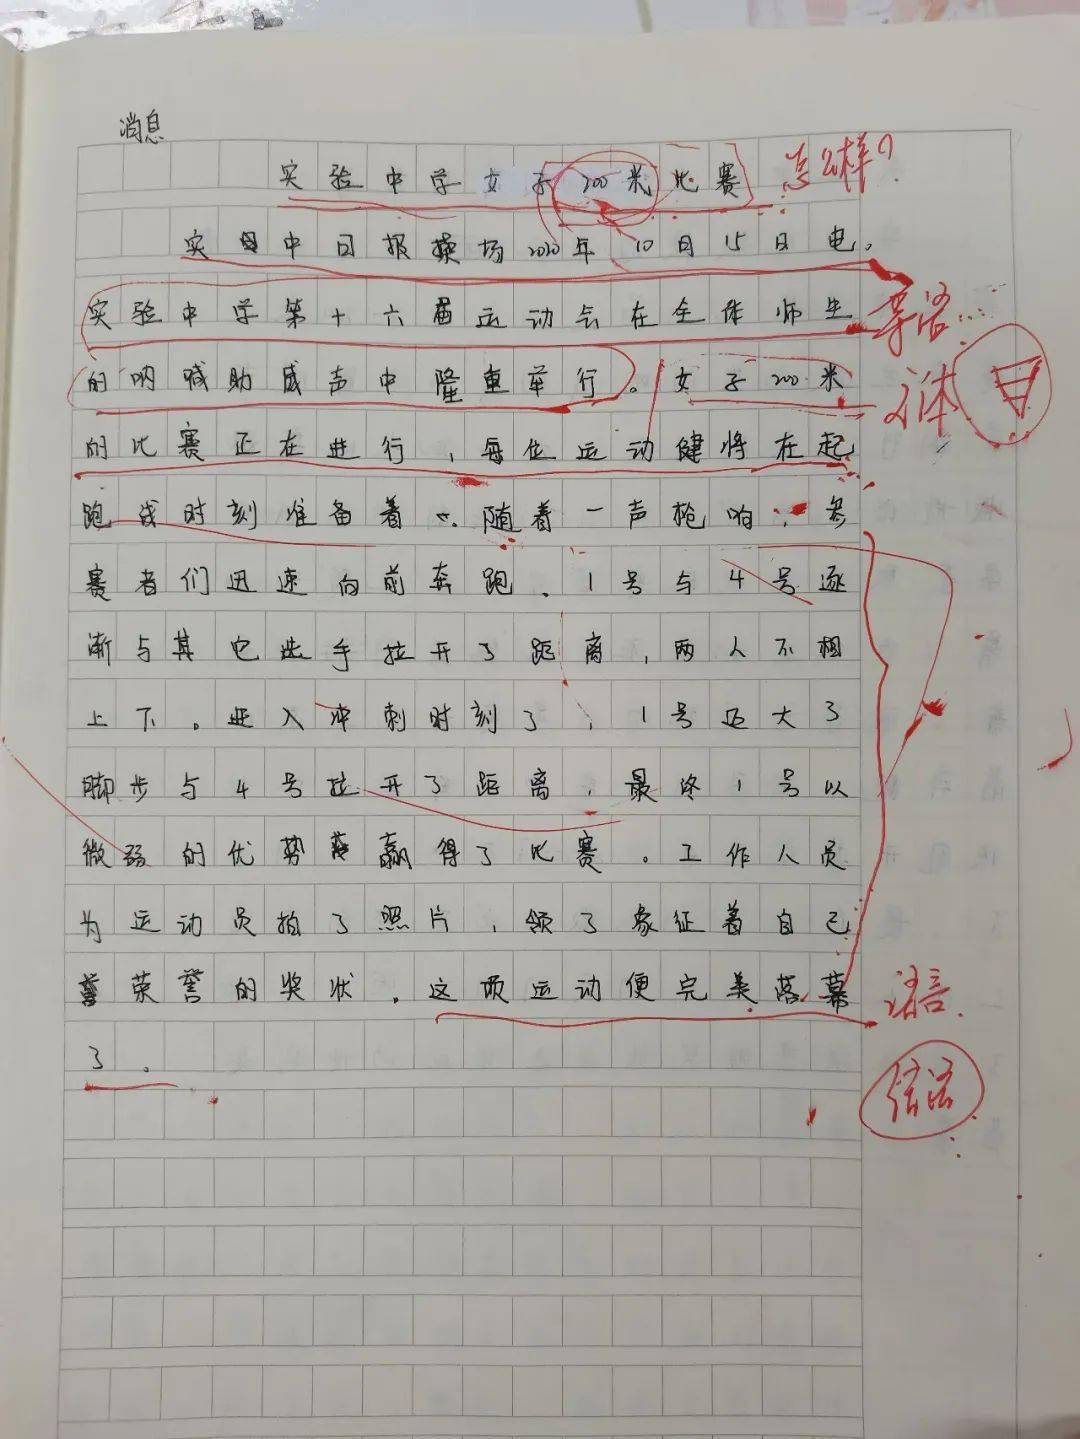 消息
实验中学女子200米比赛 怎么样？
实中日报操场2020年10月15日电。
实验中学第十六届运动会在全体师生 导语
的呐喊助威声中隆重举行。女子200米 主体
的比赛正在进行，每位运动健将在起
跑线时刻准备着。随着一声枪响，参
赛者们迅速向前奔跑。1号与4号逐
渐与其它选手拉开了距离，两人不相
上下。进入冲刺时刻了，1号迈大了
脚步与4号拉开了距离，最终1号以
微弱的优势赢得了比赛。工作人员
为运动员拍了照片，领了象征着自己
荣誉的奖状。这项运动便完美落幕 语言
了。
结语